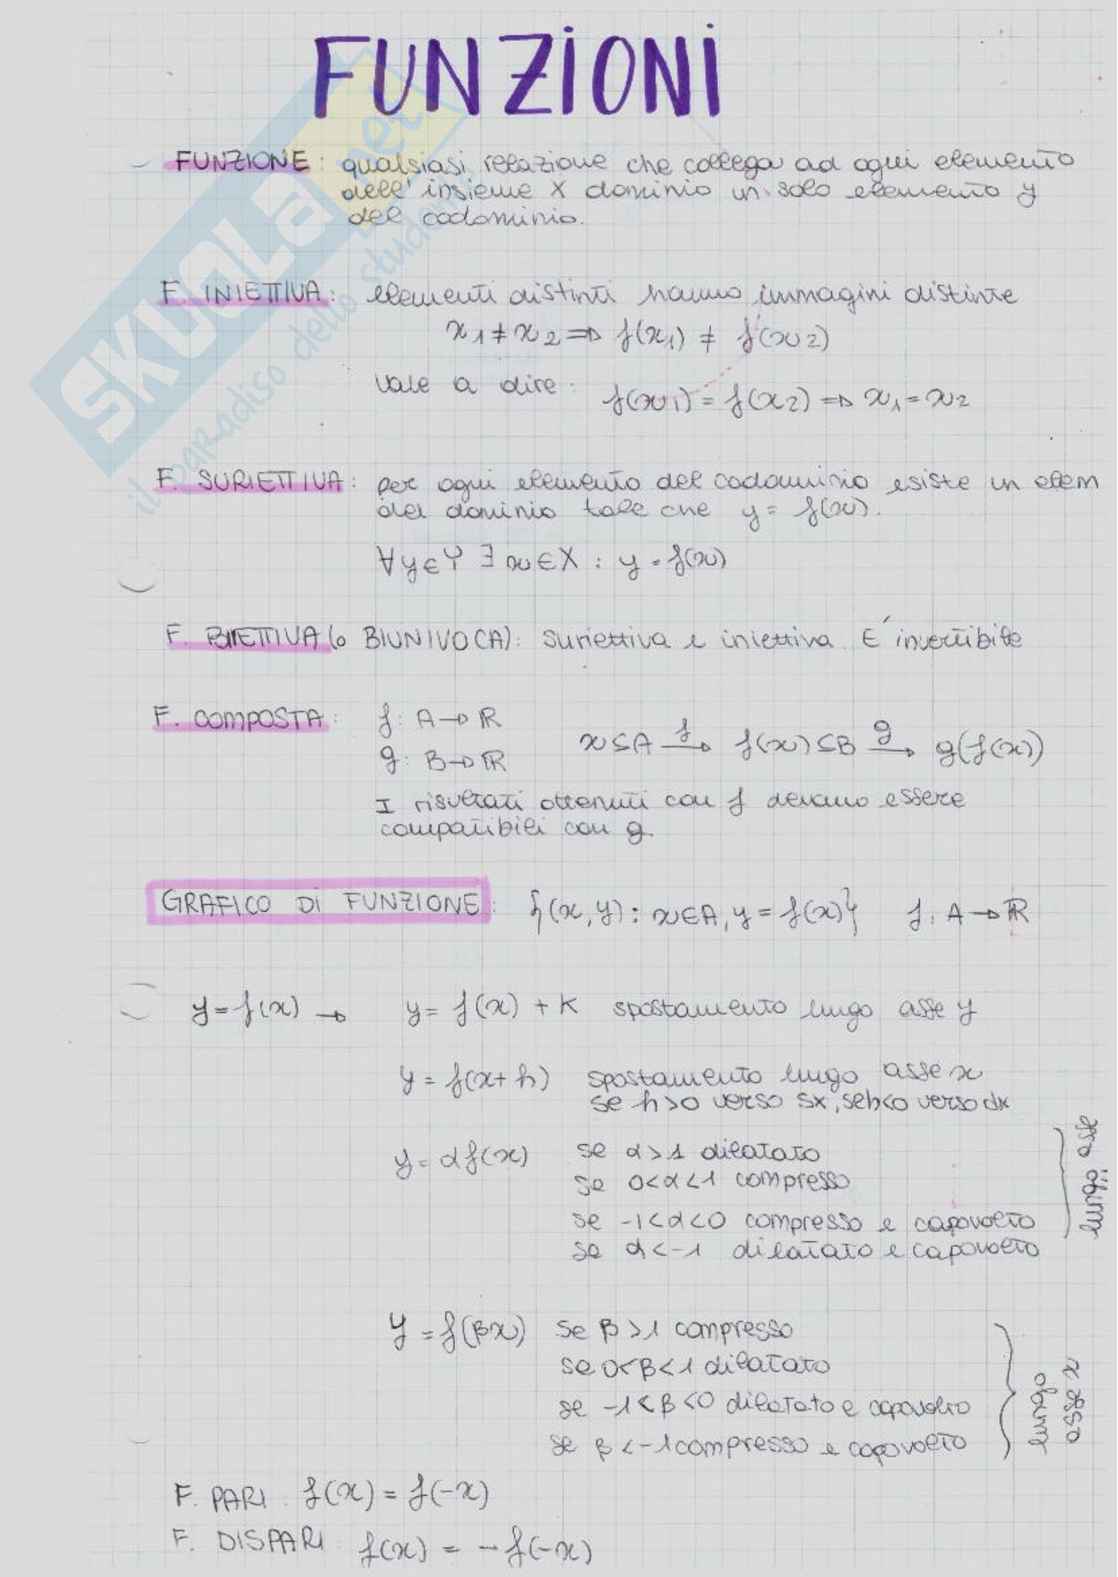 FUNZIONI
SKUOLA.net
il paradiso dello studente
FUNZIONE: qualsiasi relazione che collega ad ogni elemento
dell'insieme X dominio un solo elemento y
del codominio.
F. INIETTIVA: elementi distinti hanno immagini distinte
x1 ≠ x2 ⇒ f(x1) ≠ f(x2)
vale a dire: f(x1) = f(x2) ⇒ x1 = x2
F. SURIETTIVA: per ogni elemento del codominio esiste un elem
del dominio tale che y = f(x).
∀y∈Y ∃x∈X : y = f(x)
F. BIETTIVA (o BIUNIVOCA): suriettiva e iniettiva. É invertibile
F. COMPOSTA: f: A→ℝ
g: B→ℝ x⊆A f→ f(x)⊆B g→ g(f(x))
I risultati ottenuti con f devono essere
compatibili con g.
GRAFICO DI FUNZIONE: {(x,y): x∈A, y = f(x)} f: A→ℝ
y=f(x) → y= f(x) + K spostamento lungo asse y
y = f(x+h) spostamento lungo asse x
se h>0 verso sx, se h<0 verso dx
y= αf(x) se α>1 dilatato
se 0<α<1 compresso
se -1<α<0 compresso e capovolto
se α<-1 dilatato e capovolto
lungo asse y
y = f(βx) se β>1 compresso
se 0<β<1 dilatato
se -1<β<0 dilatato e capovolto
se β<-1 compresso e capovolto
lungo
asse x
F. PARI f(x) = f(-x)
F. DISPARI f(x) = -f(-x)